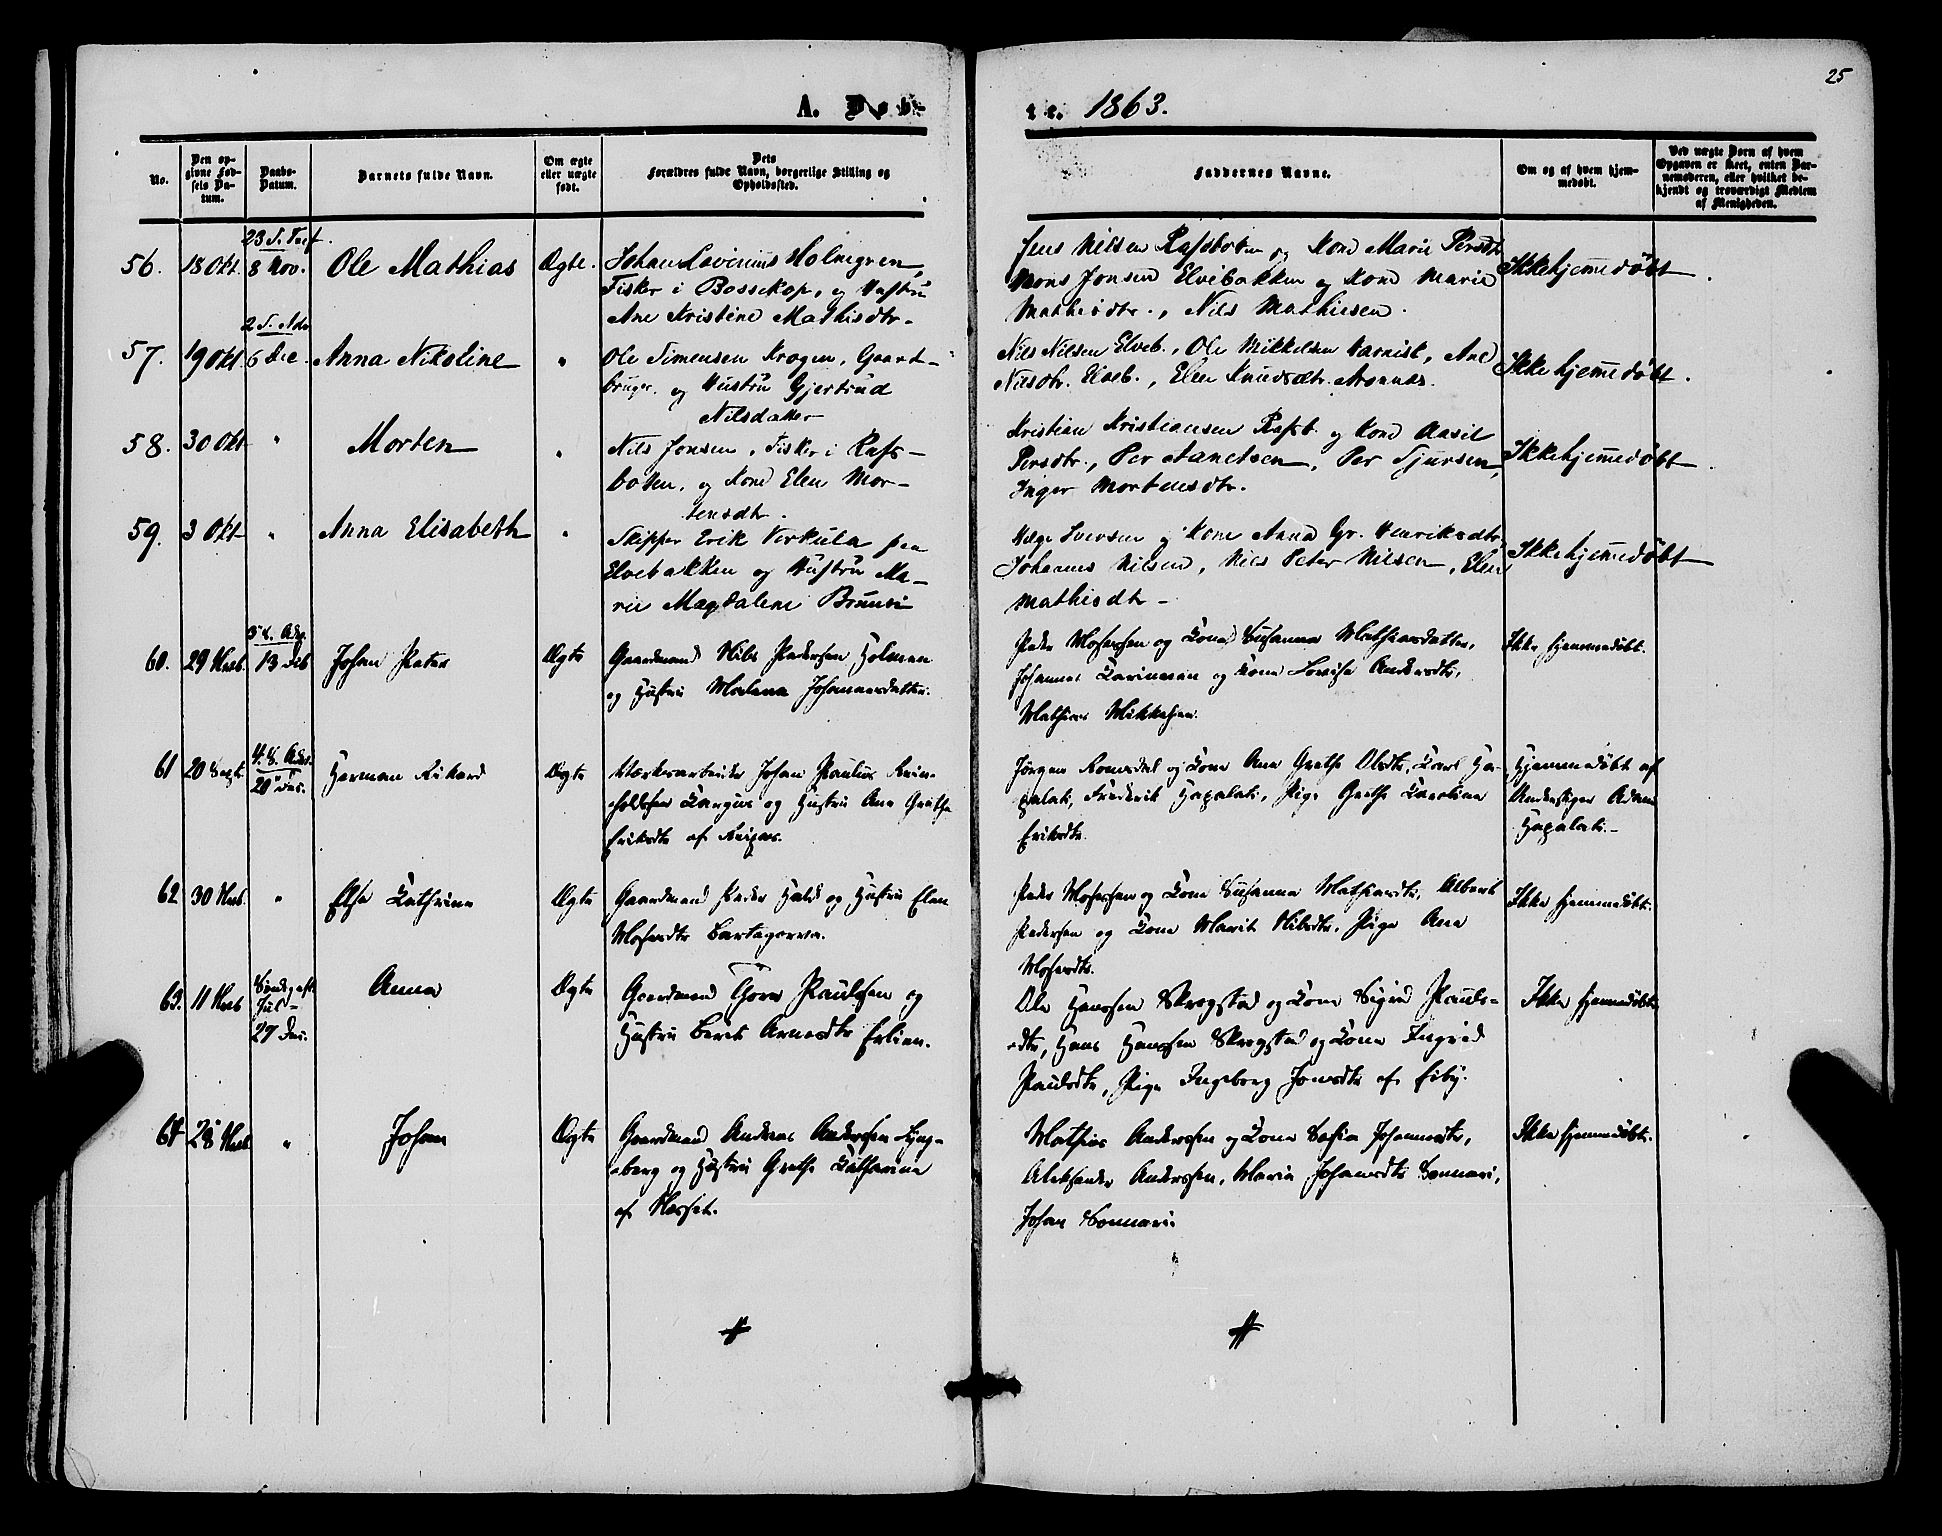 25
A. Døb-
te. 1863.
No.
Den op-
givne Fød-
sels Da-
tum.
Daabs-
Datum.
Barnets fulde Navn.
Om ægte
eller uægte
født.
Dets
Forældres fulde Navn, borgerlige Stilling og
Opholdssted.
Faddernes Navne.
Om og af hvem hjem-
medøbt.
Ved uægte Børn af hvem
Opgaven er skeet, enten Bar-
nemoderen, eller hvilket be-
kjendt og troværdigt Medlem
af Menigheden.
23 S. Tref.
56. 18 Okt. 8 Nov. Ole Mathias Ægte. Johan Lovinius Holmgren,
Fisker i Bossekop, og Hustru
Ane Kristine Mathisdtr.
Jens Nilsen Rafsbotn og Kone Marie Persdtr
Mons Jonsen Elvebakken og Kone Marie
Mathisdtr., Nils Mathiesen.
Ikke hjemmedøbt
2 S. Adv
57. 19 Okt. 6 Dec. Anna Nikoline " Ole Simensen Krogen, Gaard-
bruger. og Hustru Gjertrud
Nilsdatter
Nils Nilsen Elveb., Ole Mikkelsen, Ane
Nilsdtr. Elveb., Elen Knudsdtr. Aronnes.
Ikke hjemmedøbt.
58. 30 Okt " Morten " Nils Jonsen, Fisker i Rafs-
boten, og Kone Elen Mor-
tensdtr.
Kristian Kristiansen Rafsb. og Kone Aasil
Persdtr., Per Aanetsen, Per Sjursen,
Inger Mortensdtr.
Ikke hjemmedøbt
59. 3 Okt " Anna Elisabeth " Skipper Erik Virkula fra
Elvebakken og Hustru Ma-
rie Magdalene
Helge Iversen og Kone Anna Gr. Henriksdtr,
Johannes Nilsen, Nils Peter Nilsen, Elen
Mathisdtr
Ikke hjemmedøbt
3 S. Adv.
60. 29 13 Johan Peter Ægte Gaardmand Nils Pedersen Holmen
og Hustru Malena Johannesdatter.
Peder Mosessen og Kone Susanna Mathiasdatter,
Johannes og Kone Lovise Andersdtr,
Mathias Mikkelsen.
Ikke hjemmedøbt.
4. S. Adv.
61 20 Sept. 20 Dec. Herman Rikard Ægte Værksarbeider Johan Paulus Rein-
holdsen og Hustru Ane Grethe
Eriksdtr af Raipas.
Jørgen Romsdal og Kone Ane Grethe Olsdtr, Karl Ha-
palati, Frederik Hapalati, Pige Grethe Karolina
Eriksdtr.
Hjemmedøbt af
Adam
Hapalati.
62 30 " Else Kathrine Ægte Gaardmand Peder og Hustru Elen
Mosesdtr
Peder Mosessen og Kone Susanna Mathiasdtr, Albert
Pedersen og Kone Marit Nilsdtr, Pige Ane
Mosesdtr.
Ikke hjemmedøbt.
Søndag eft.
Jul-
63. 11 27 Dec. Anna Ægte Gaardmand Tore Paulsen og
Hustru Beret Arnesdtr Erlien.
Ole Hanssen Skrogstad og Kone Sigrid Pauls-
dtr, Hans Hanssen Skrogstad og Kone Ingrid
Paulsdtr, Pige Ingeborg Jonsdtr af Eiby.
Ikke hjemmedøbt
64 28 " Johan Ægte Gaardmand Andreas Anderssen Lyng-
berg og Hustru Grethe Katharina
af
Mathias Anderssen og Kone Sofia Johannesdtr,
Aleksander Anderssen, Maria Johansdtr Sonnari,
Johan Sonnari.
Ikke hjemmedøbt.